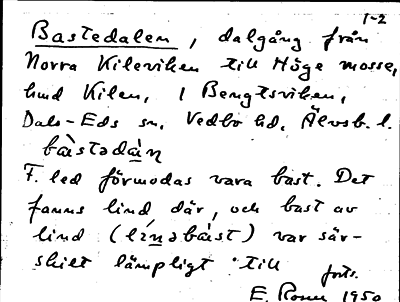 1-2
Bastedalen, dalgång från
Norra Kileviken till Höge mosse,
hmd Kilen, i Bengtsviken,
Dals-Eds sn, Vedbo hd, Älvsb. l.
bàstədàn
F. led förmodas vara bast. Det
fanns lind där, och bast av
lind (línəbàst) var sär-
skilt lämpligt till
forts.
E. 1950